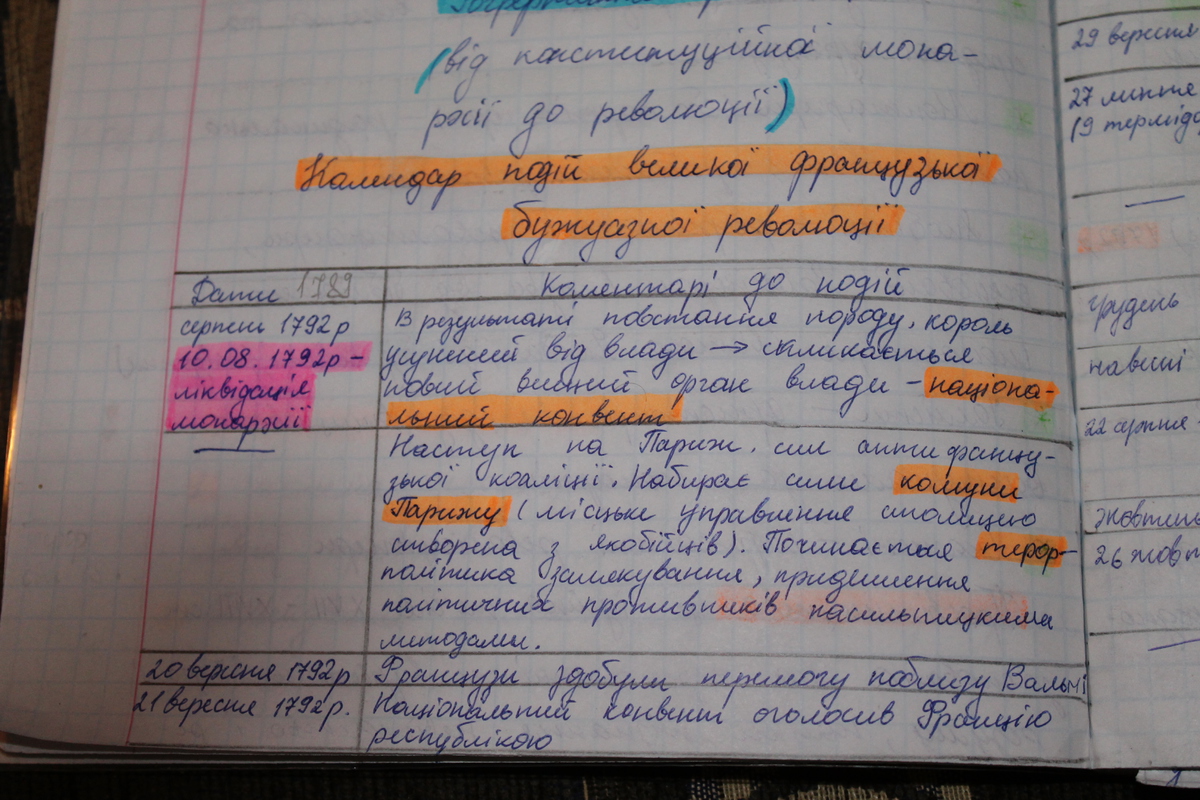 (від конституційної мона-
рхії до революції)
Календар подій великої французької
буржуазної революції
Дати 1789
Коментарі до подій
серпень 1792 р
10.08.1792р –
ліквідація
монархії
В результаті повстання народу, король
усунений від влади → скликається
новий вищий орган влади – націона-
льний конвент
Наступ на Париж. сил антифранцу-
зької коаліції. Набирає сили комуни
Парижу (місцьке управління столицею
створена з якобійців). Починається терор–
політика залякування, придушення
політичних противників насильницкима
митодами.
20 вересня 1792р
Французи здобули перемогу поблизу Вальмі
21 вересня 1792р.
Національний конвент оголосив Францію
республікою
29 вересня
27 липня
19 термідо
грудень
навині
22 серпня
жовтень
26 жовт